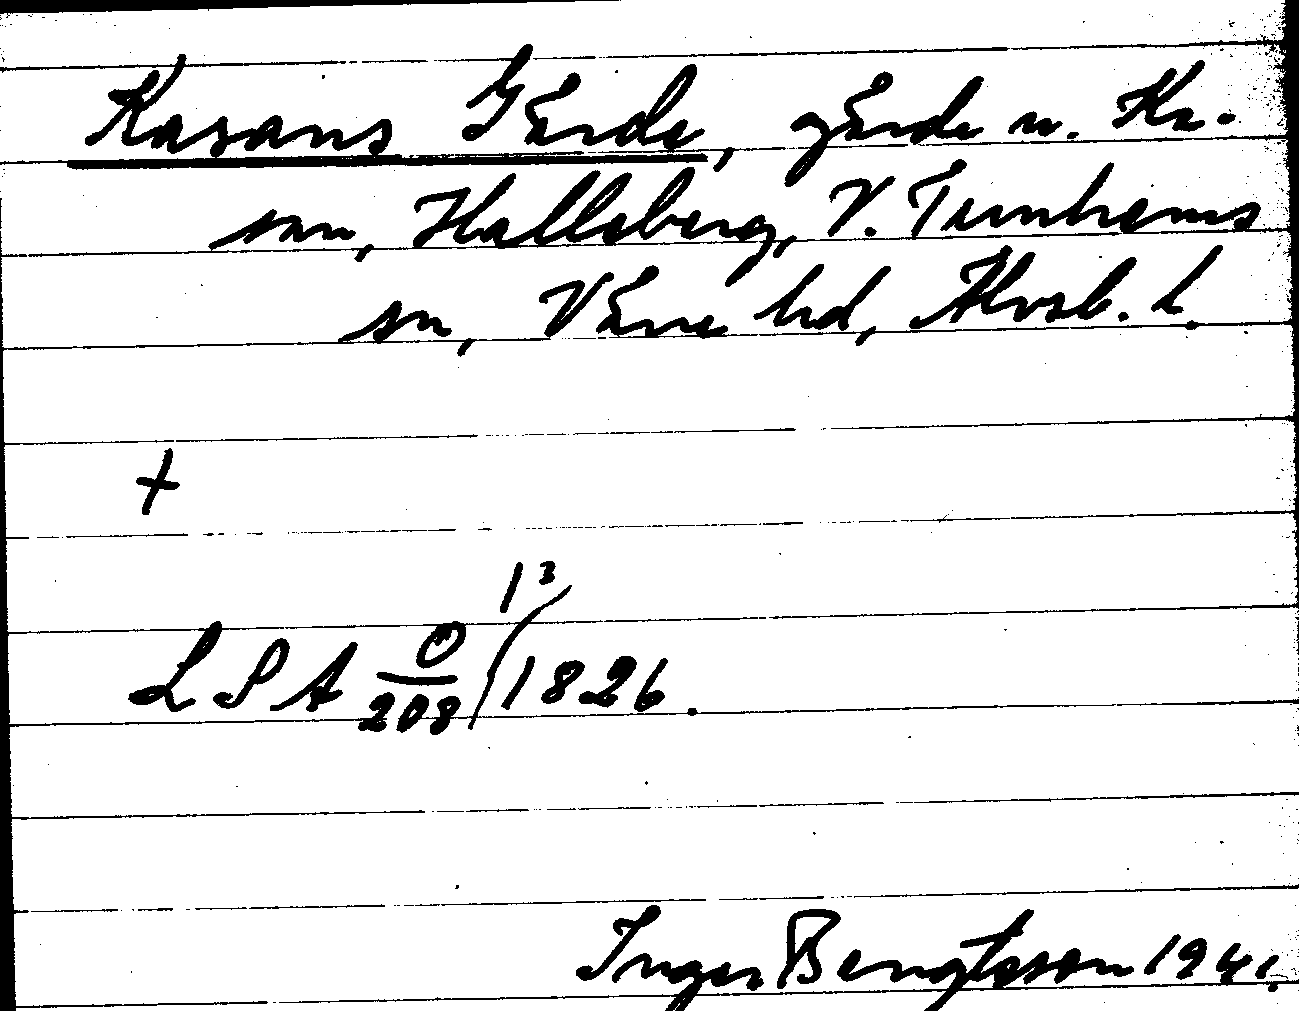 Kasans Gärde, gärde u. Ka-
san, Halleberg, V. Tunhems
sn, Väne hd, Älvsb. l.
+
LSA O/208 / 1³ 1826.
Inger Bengtsson 1941.